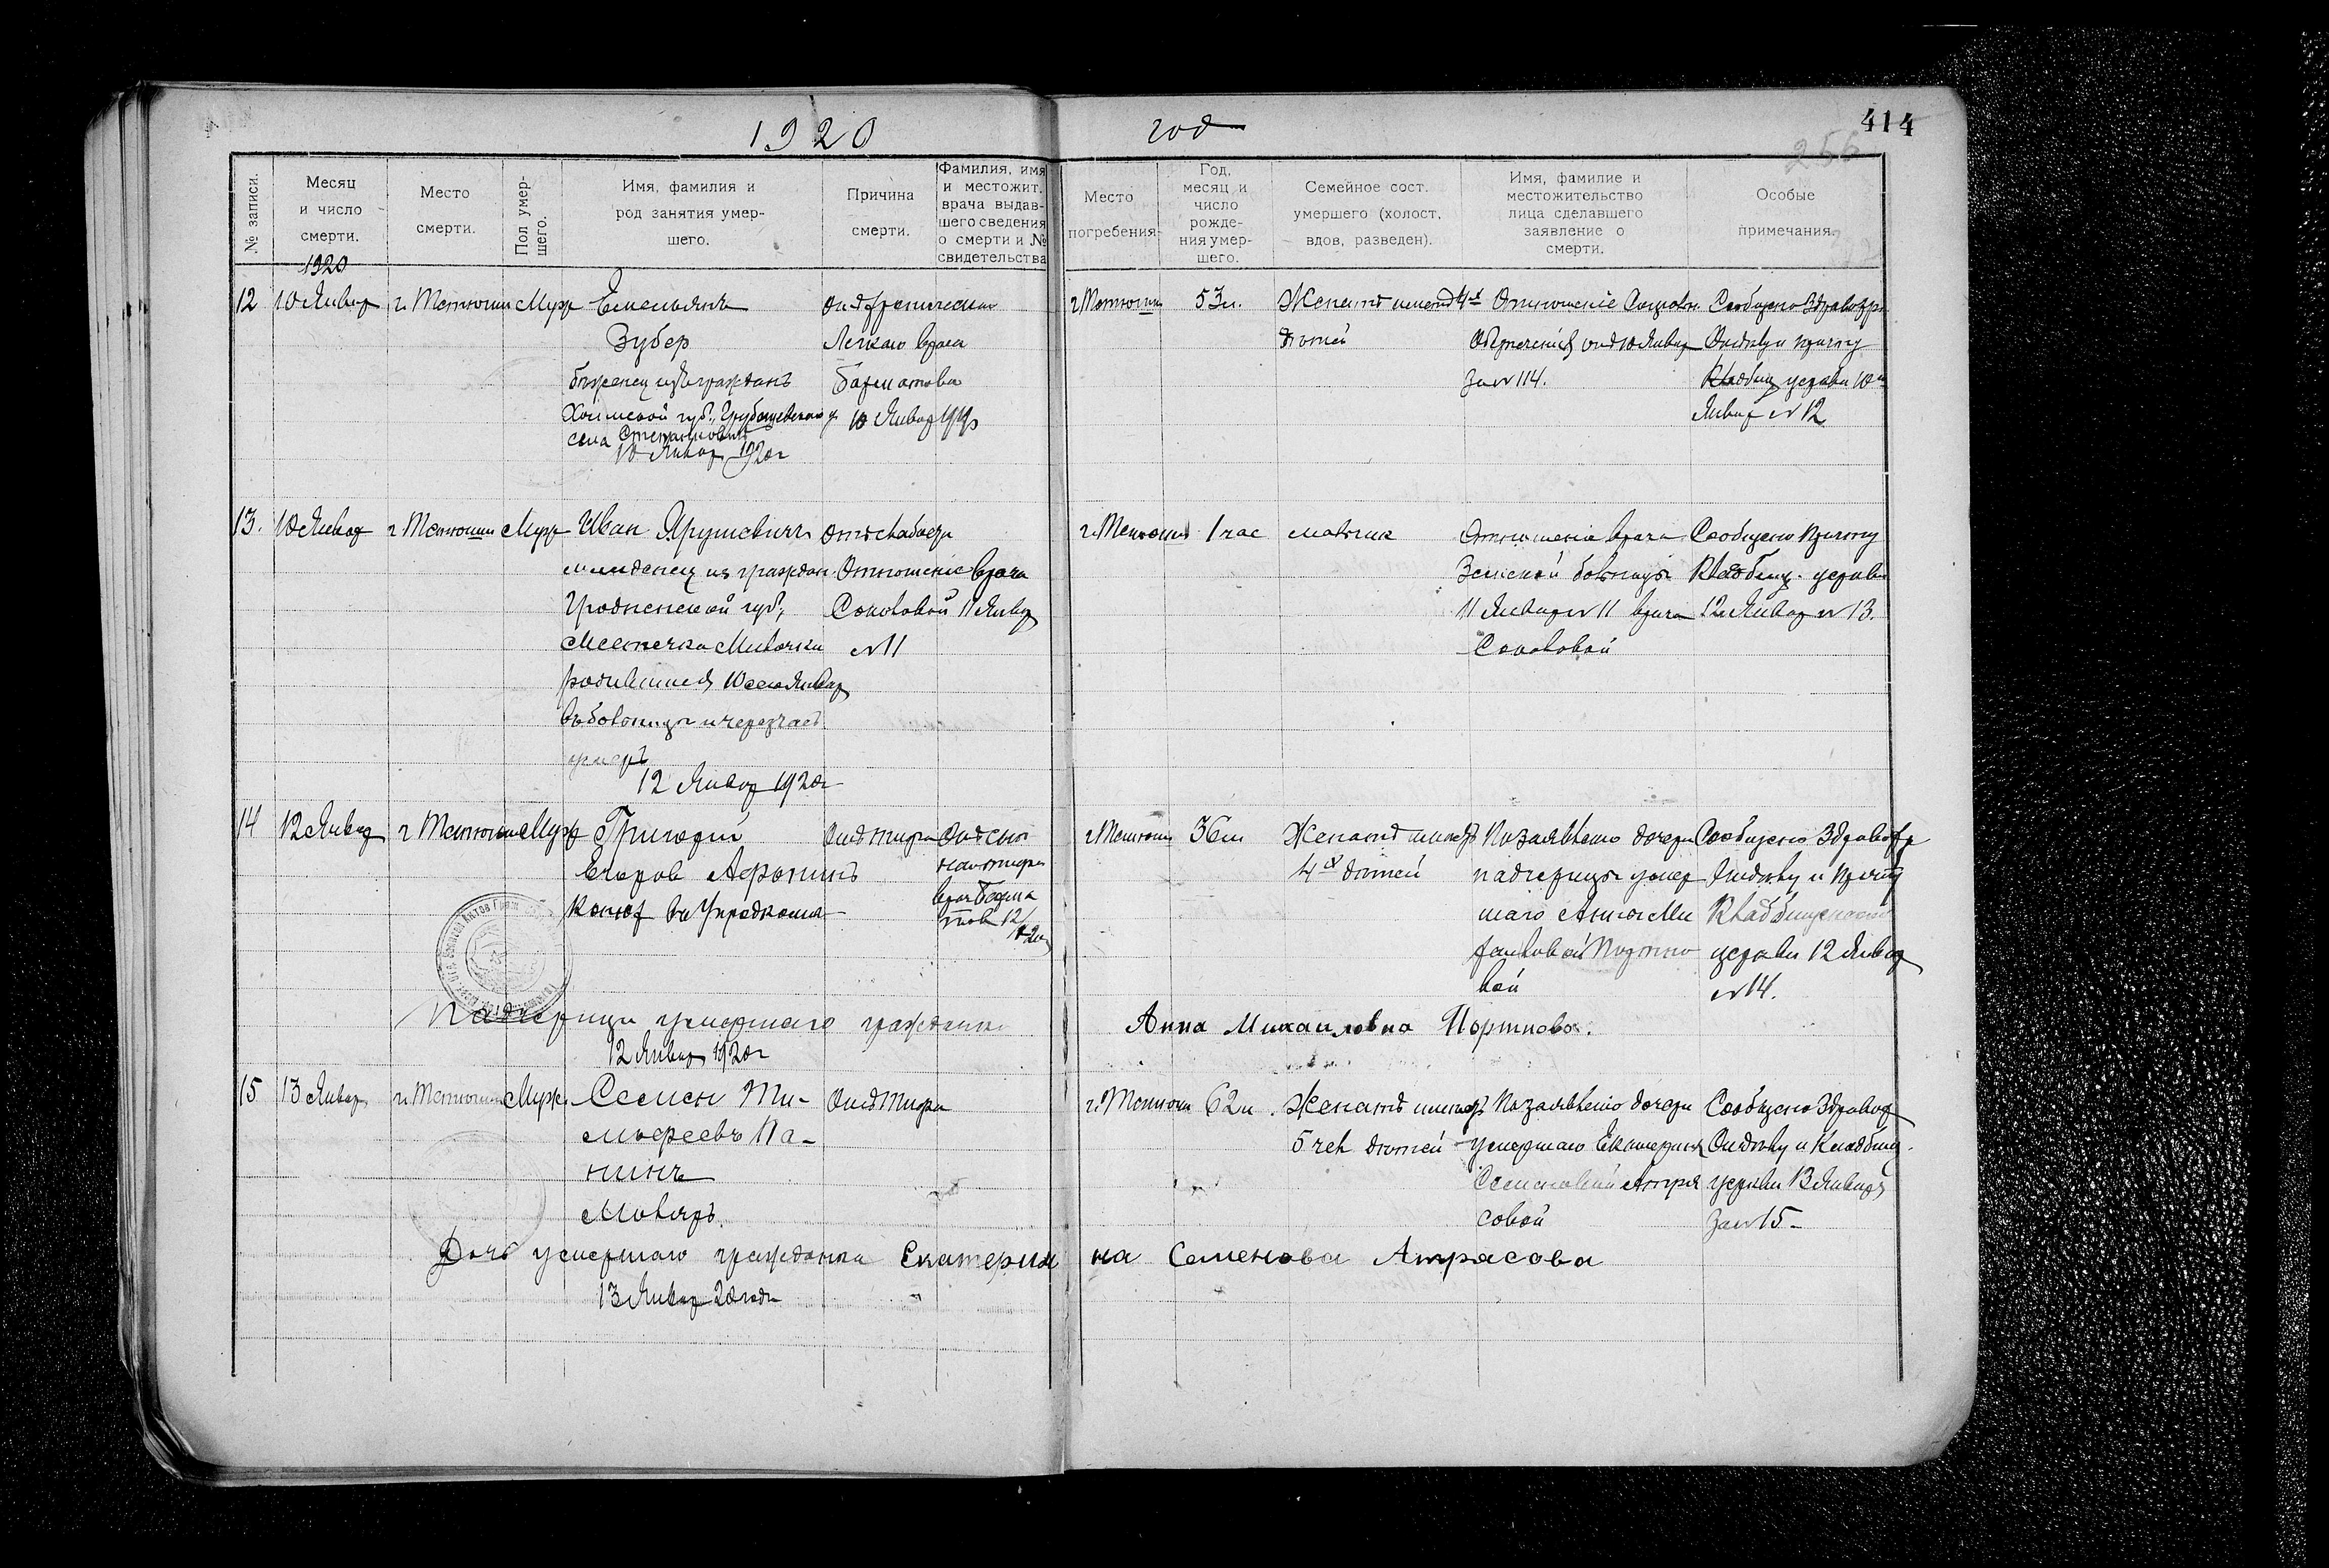 1920 год
414
256
№ записи.
Месяц и число смерти.
Место смерти.
Пол умершего.
Имя, фамилия и род занятия умершего.
Причина смерти.
Фамилия, имя и местожит. врача выдавшего сведения о смерти и № свидетельства
Место погребения.
Год, месяц и число рождения умершего.
Семейное сост. умершего (холост, вдов, разведен).
Имя, фамилие и местожительство лица сделавшего заявление о смерти.
Особые примечания.
1920
12
10 Январ
г. Тетюши
Муж
Емельянъ
Зубер
беженец из граждан
Холмской губ., Грубешевскаго у
села
10 Январ 1920 г
Легкаго врача
10 Январ
г Тетюши
53 л.
Женатъ имеет 4х
детей
Отношение
от 10 Январ
за № 114.
Сообщено Здравохр
Отделу и причту
Кладбищ церкви 10го
Январ № 12
13.
10 Январ
г Тетюши
Муж
Иван
младенец из граждан
Гродненской губ.,
местечка
родившийся 10 сего Январ
въ больнице и через час
умеръ
12 Январ 1920 г
от слабости
Отношение врача
Соколовой 11 Январ
№ 11
г. Тетюши
1 час
мальчик
Отношение врача
Земской больницы
11 Январ № 11 врача
Соколовой
Сообщено причту
Кладбищ. церкви
12 Январ № 13.
14
12 Январ
г Тетюши
Муж
Григорий
Егоров Афонинъ
Конюх
От тифа
От сып
наго тифа
врач Барма
тов 12/1 20
г Тетюши
36 л
Женатъ имеетъ
4х детей
По заявлению дочери
падчерицы умер
шаго Анны Ми
хайловой Портно
вой
Сообщено Здравохр
Отделу и причту
Кладбищенской
церкви 12 Январ
№ 14.
Падчерица умершаго гражданка Анна Михаиловна Портнова.
12 Январ 1920 г
15
13 Январ
г. Тетюши
Муж.
Семен Ти-
мофеевъ Па-
нинъ
Маляръ.
От тифа
г. Тетюши
62 л.
Женатъ имеетъ
5 чел детей
По заявлению дочери
умершаго Екатерины
Семеновой Атря
совой
Сообщено Здравохр
Отделу и Кладбищ.
церкви 13 Января
за № 15 –
Дочь умершаго гражданка Екатерина Семенова Атрясова
13 Январ 20 года